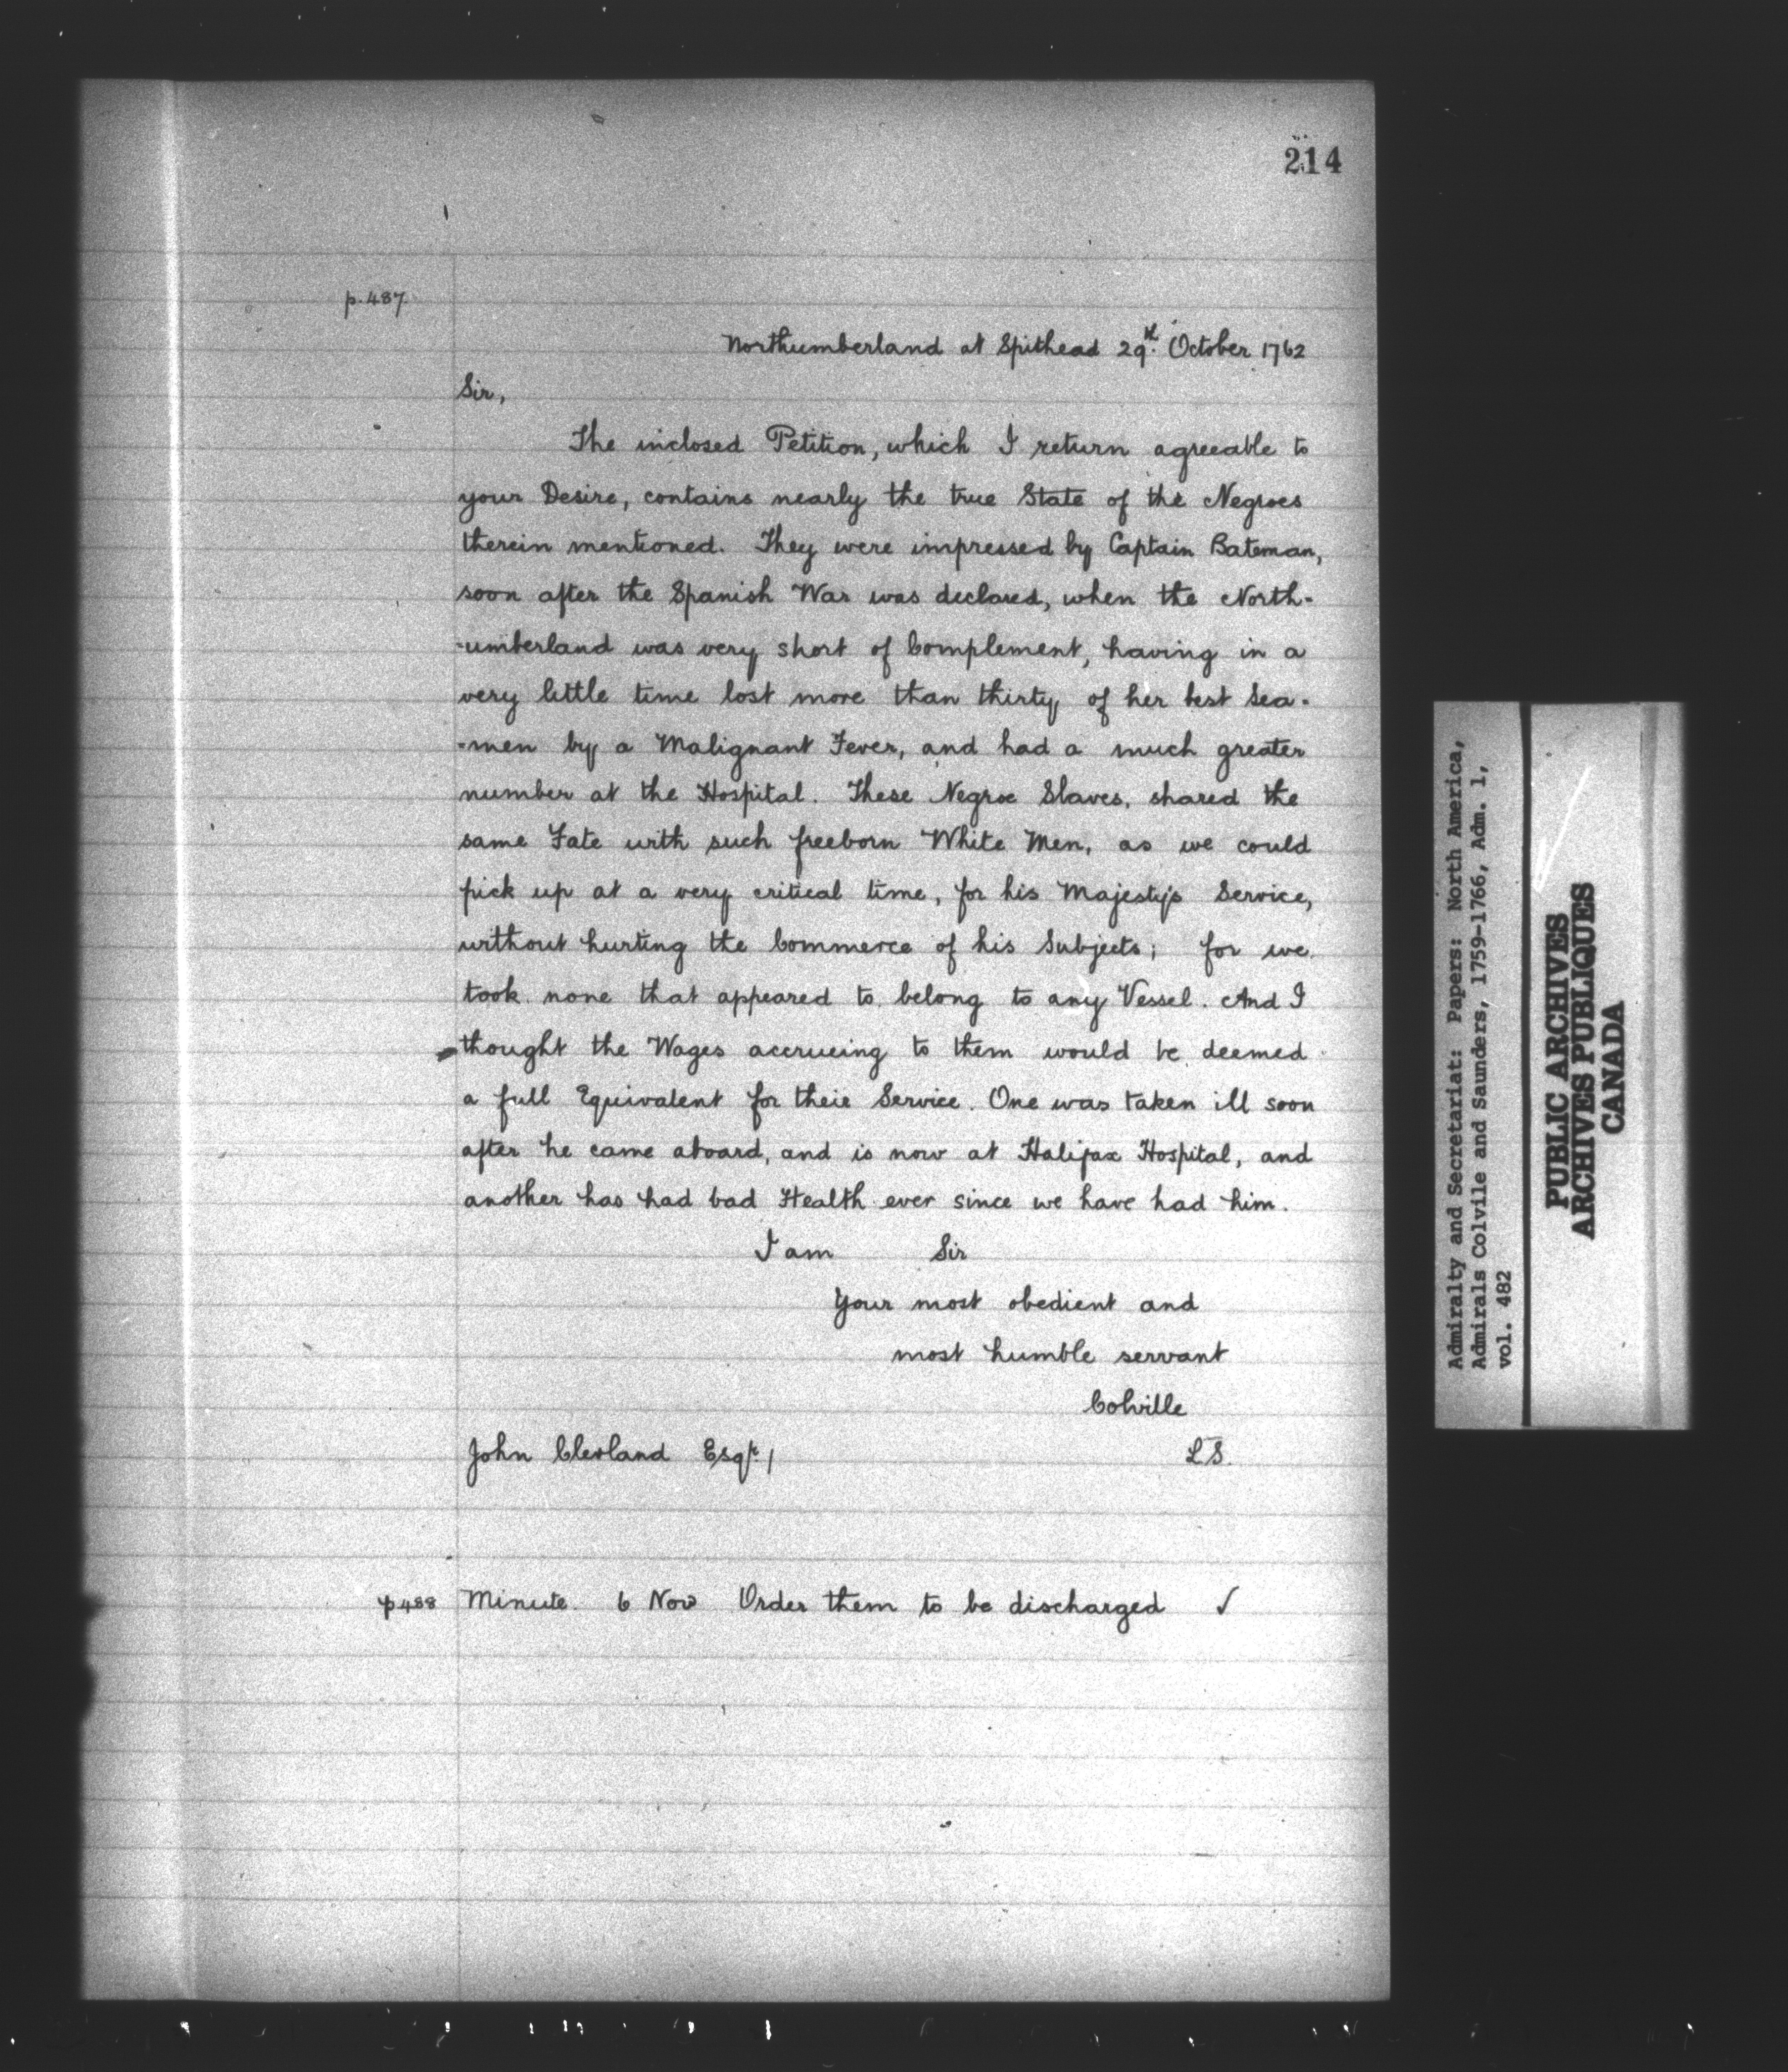 214
p. 487.
Northumberland at Spithead 29th. October 1762
Sir,
The inclosed Petition, which I return agreeable to
your Desire, contains nearly the true State of the Negroes
therein mentioned. They were impressed by Captain Bateman,
soon after the Spanish War was declared, when the North-
-umberland was very short of Complement, having in a
very little time lost more than thirty, of her best Sea-
-men by a Malignant Fever, and had a much greater
number at the Hospital. These Negroe Slaves, shared the
same Fate with such freeborn White Men, as we could
pick up at a very critical time, for his Majesty's Service,
without hurting the Commerce of his Subjects; for we
took none that appeared to belong to any Vessel. And I
thought the Wages accrueing to them would be deemed
a full Equivalent for their Service. One was taken ill soon
after he came aboard, and is now at Halifax Hospital, and
another has had bad Health ever since we have had him.
I am Sir
Your most obedient and
most humble servant
Colville
John Clevland Esqr. /
L S.
p 488 Minute. 6 Nov Order them to be discharged ✓
Admiralty and Secretariat: Papers: North America,
Admirals Colvile and Saunders, 1759-1766, Adm. 1,
vol. 482
PUBLIC ARCHIVES
ARCHIVES PUBLIQUES
CANADA